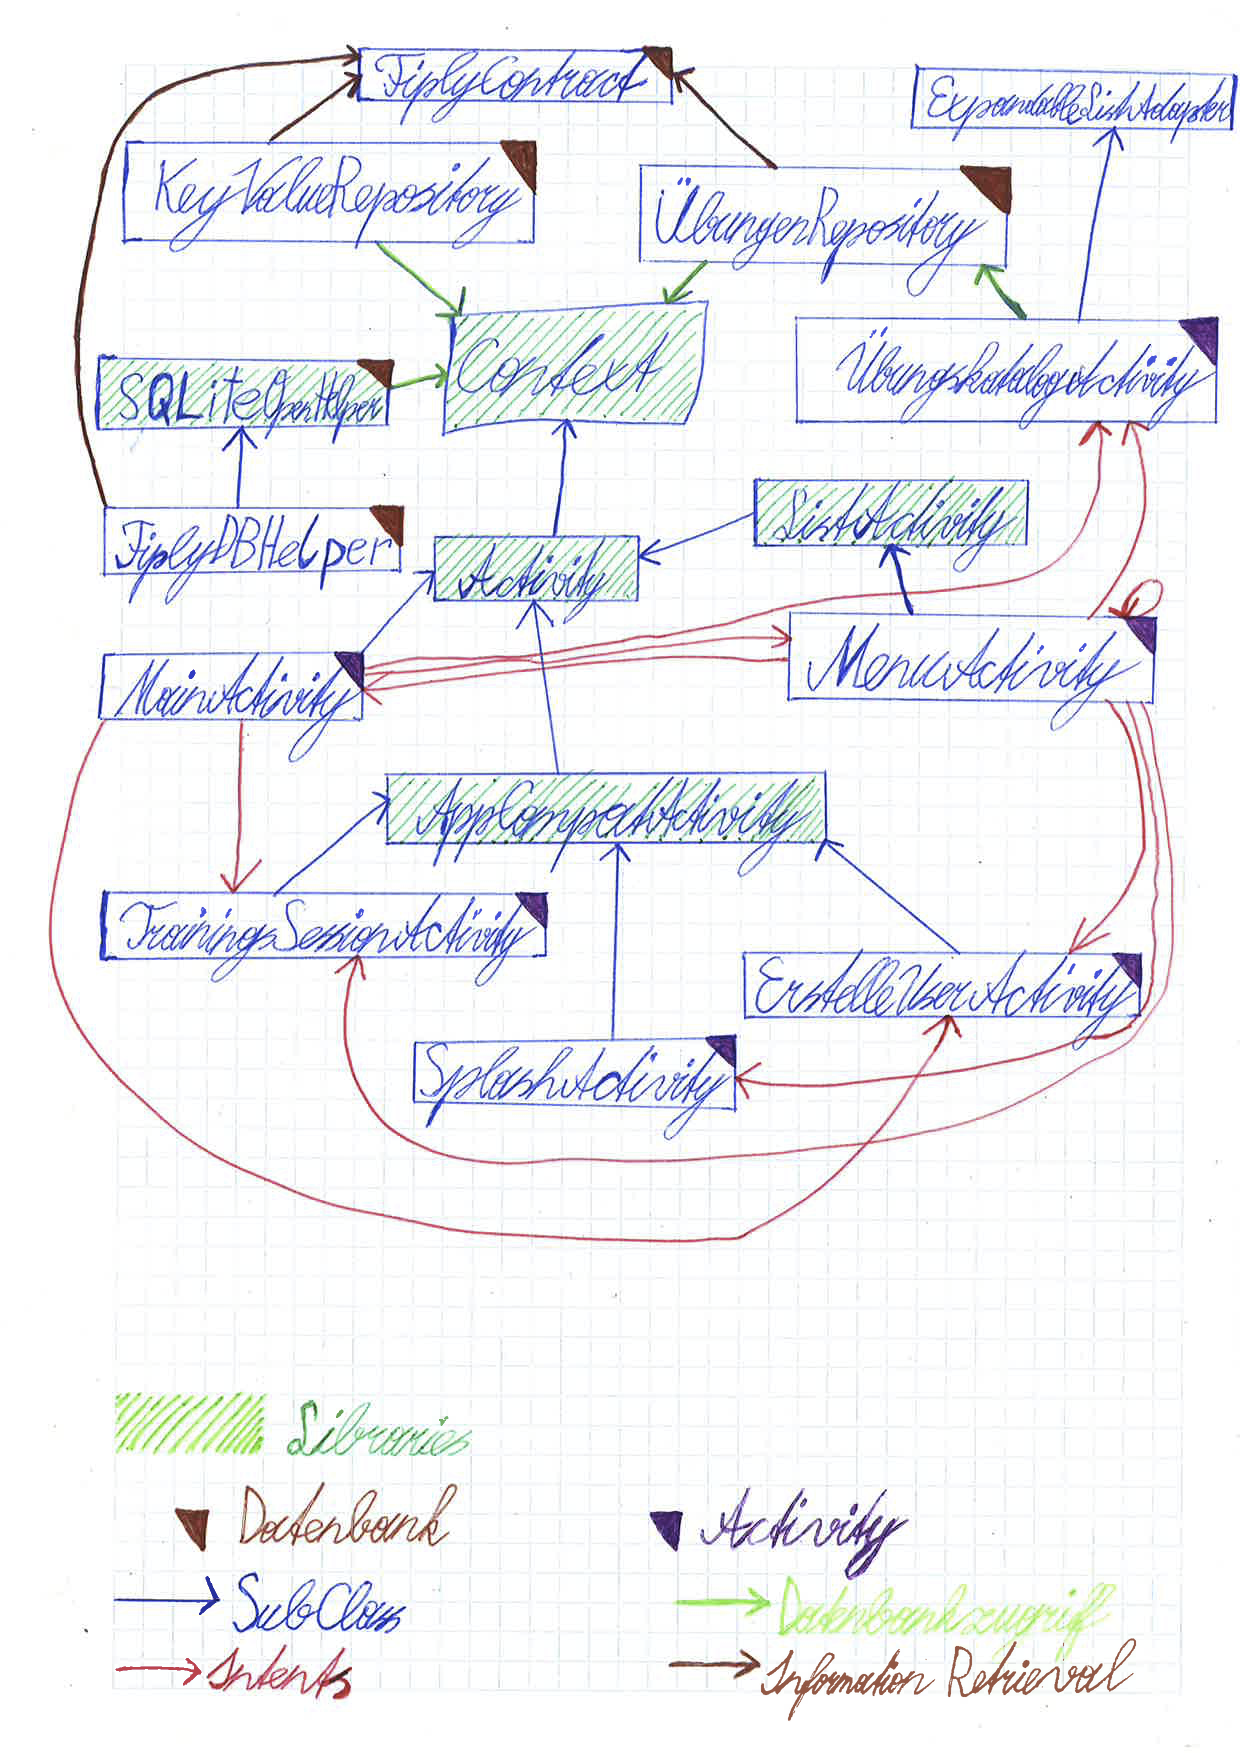 FiplyContract
ExpandableListAdapter
KeyValueRepository
ÜbungenRepository
Context
ÜbungskatalogActivity
SQLiteOpenHelper
ListActivity
FiplyDBHelper
Activity
MainActivity
MenuActivity
AppCompatActivity
TrainingsSessionActivity
ErstelleUserActivity
SplashActivity
Libraries
Datenbank
Activity
SubClass
Datenbankzugriff
Intents
Information Retrieval